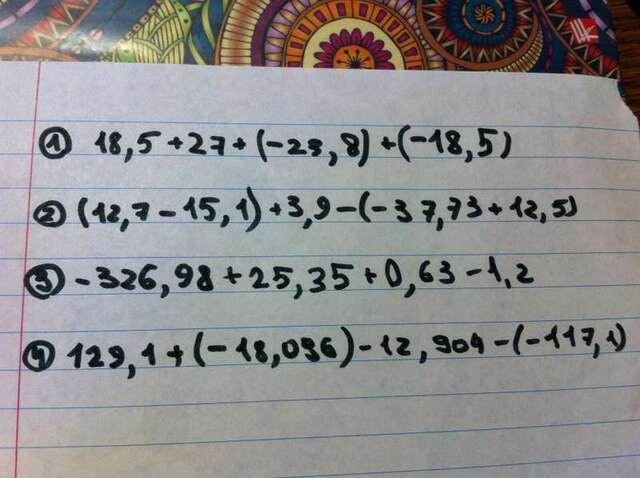 ① 18,5+27+(-23,8)+(-18,5)
② (12,7-15,1)+3,9-(-37,73+12,5)
③ -326,98+25,35+0,63-1,2
④ 129,1+(-18,096)-12,904-(-117,1)